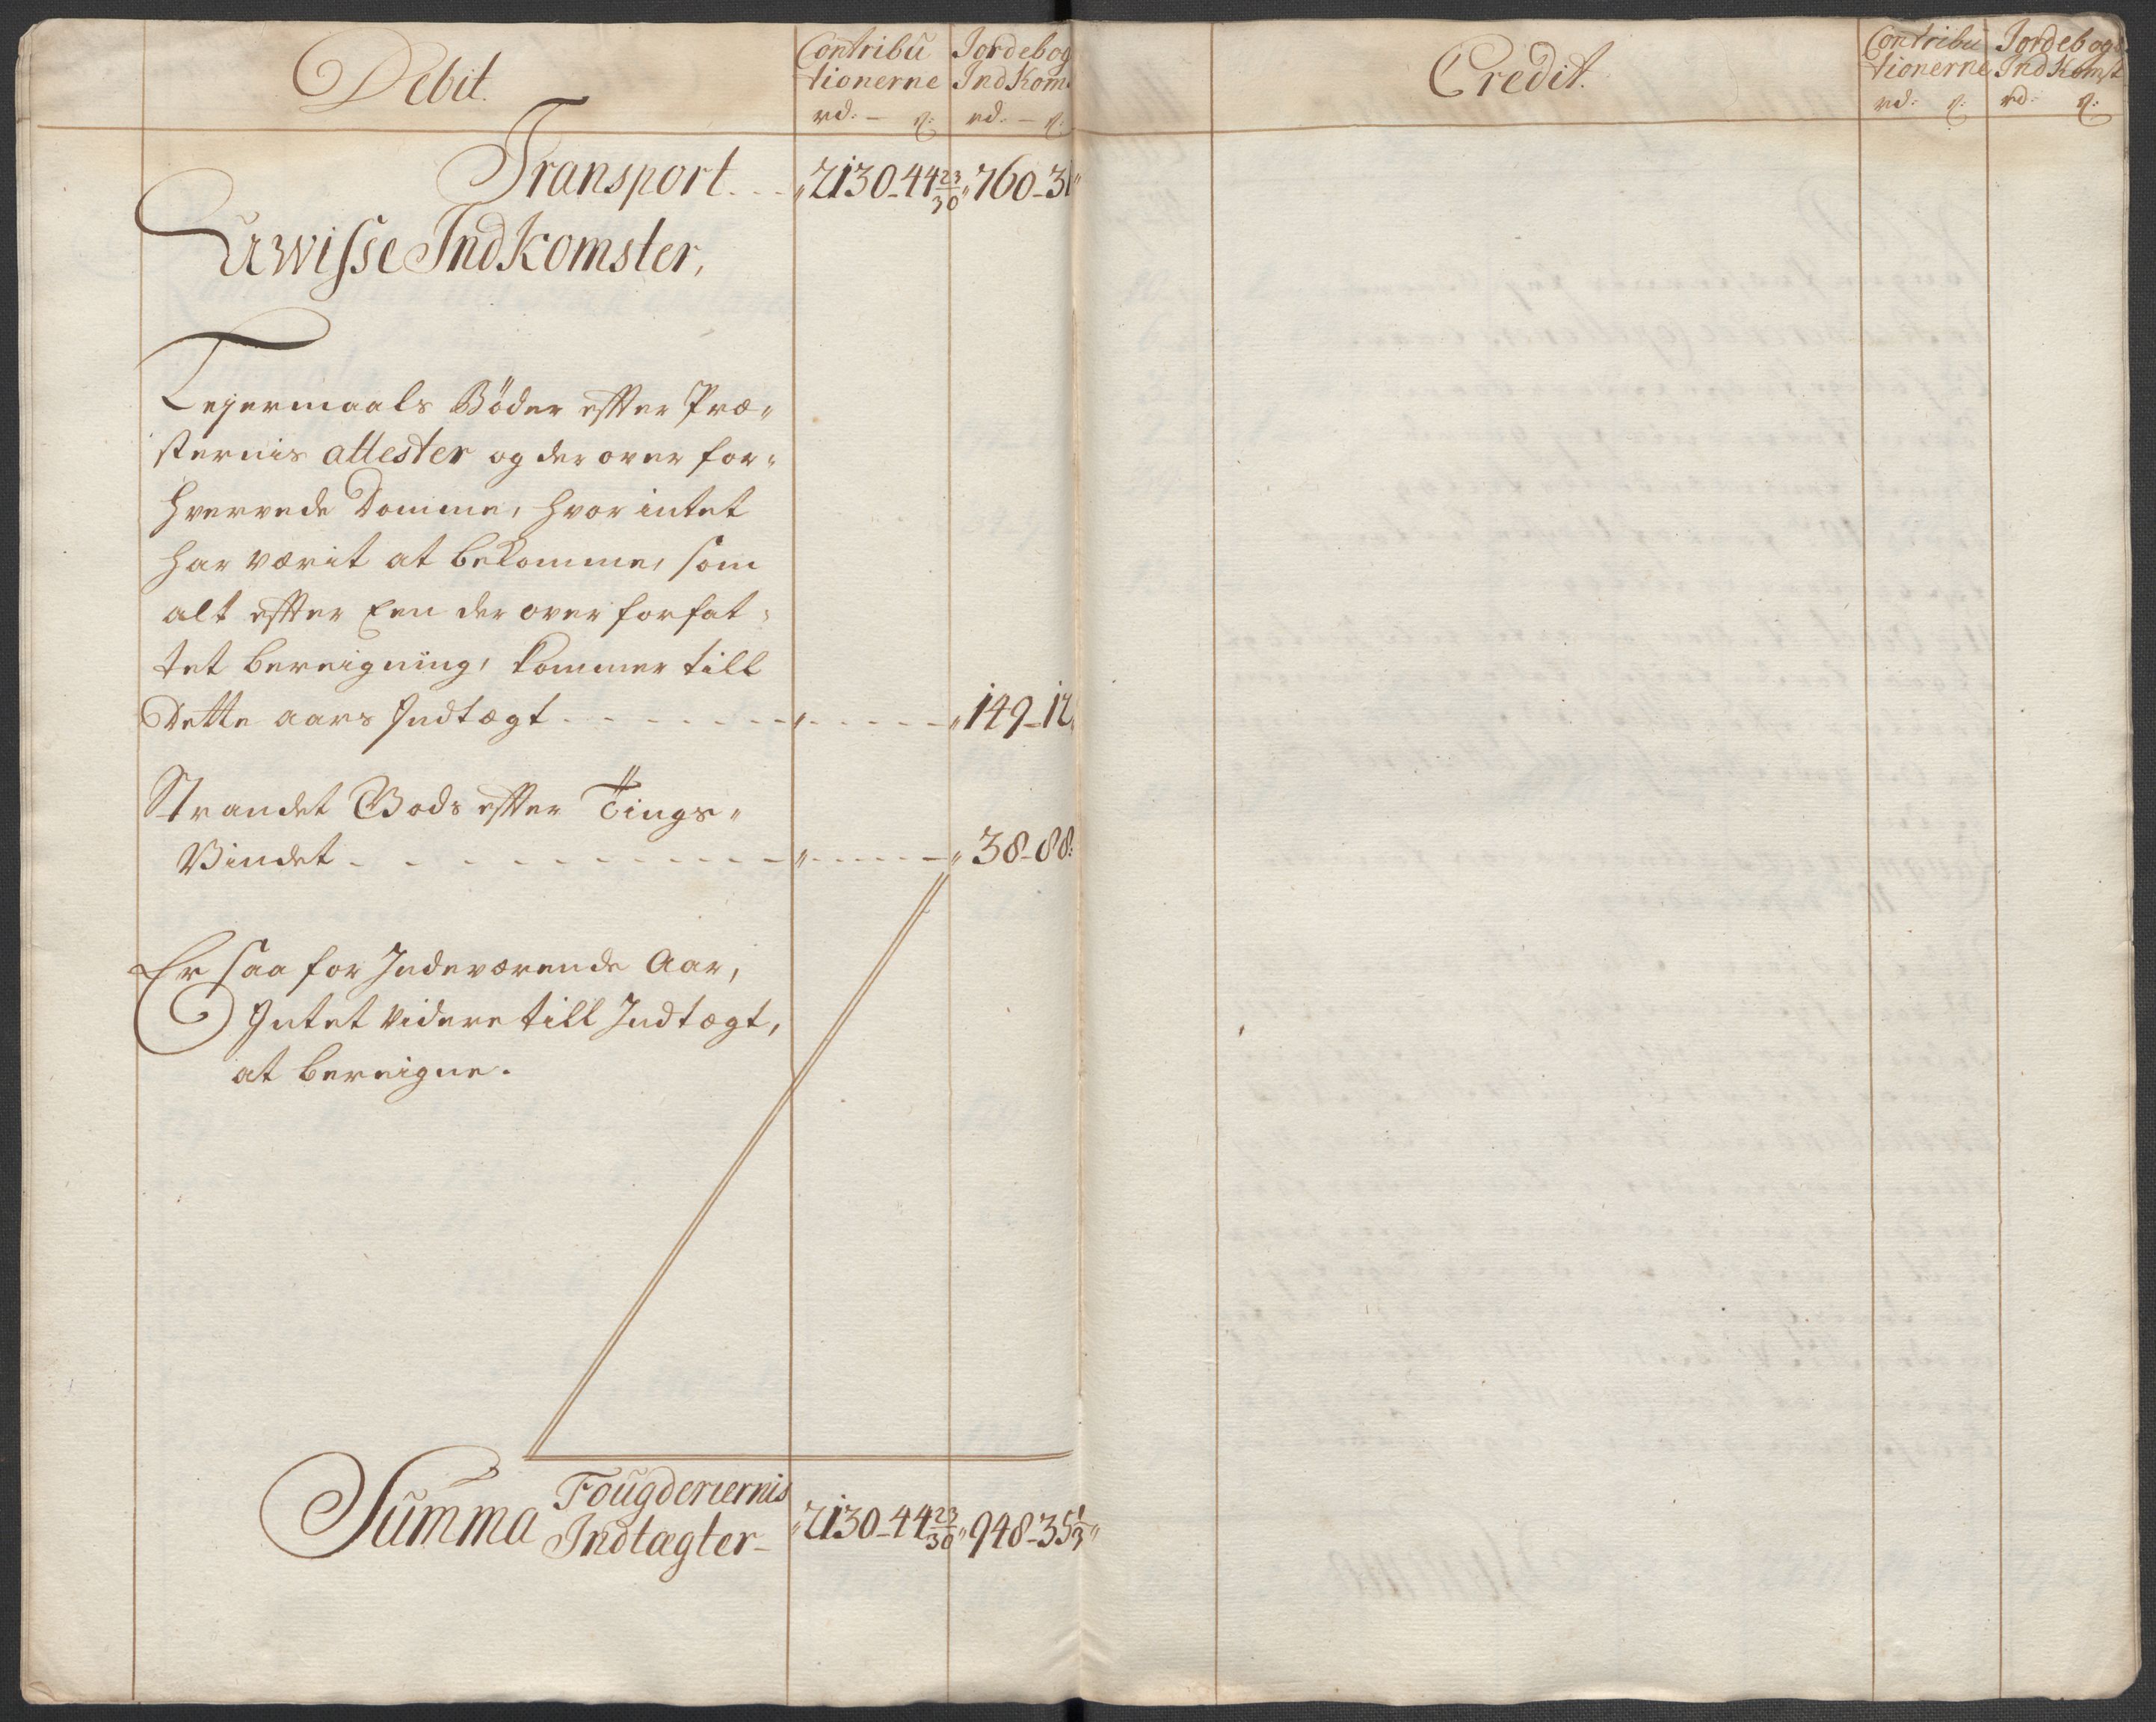 Debit.
Contribu Jordebog
tionerne IndKom
rd: – ß: rd: – ß:
Transport. . . 2130-44 23/30 760-31
Uwisse IndKomster,
Lejermaals Böder efter Præ-
sternis attester og der over for-
hvervede Domme, hvor intet
har værit at bekomme, som
alt efter Een der over forfat-
tet bereigning, kommer till
Dette aars Indtægt - - - - - - 149-12
Strandet Gods efter Tings-
Vindet - - - - - - 38-88:
Er saa for Indeværende Aar,
Intet videre till Indtægt,
at bereigne.
Summa Fougderiernis
Indtægter- 2130-44 23/30 948-35 1/3
Credit.
Contribu Jordebogs
tionerne IndKomst
rd: ß: rd: ß: